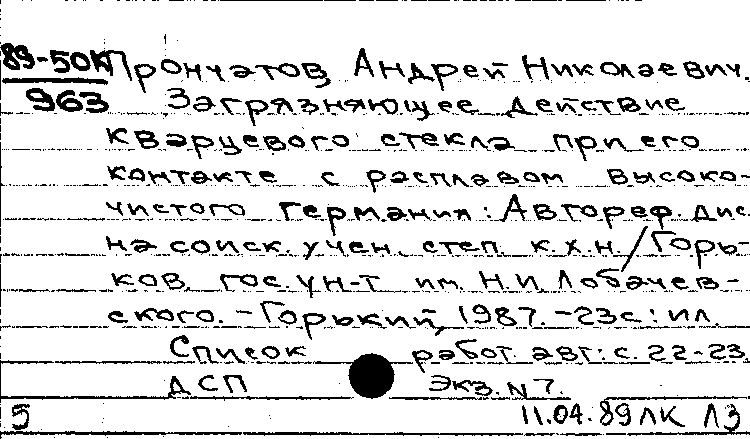 89-50К Прончатов, Андрей Николаевич.
963 Загрязняющее действие
кварцевого стекла при его
контакте с расплавом высоко-
чистого германия: Автореф. дис.
на соиск. учен. степ. к.х.н./Горь-
ков. гос. ун-т им. Н.И. Лобачев-
ского. - Горький, 1987. - 23с.: ил.
Список работ авт.: с. 22-23.
ДСП Экз. N 7.
5 11.04.89 ЛК ЛЗ